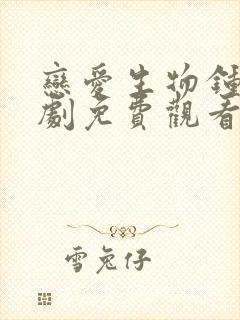 戀愛生物鐘
劇免費觀看
雪兔仔